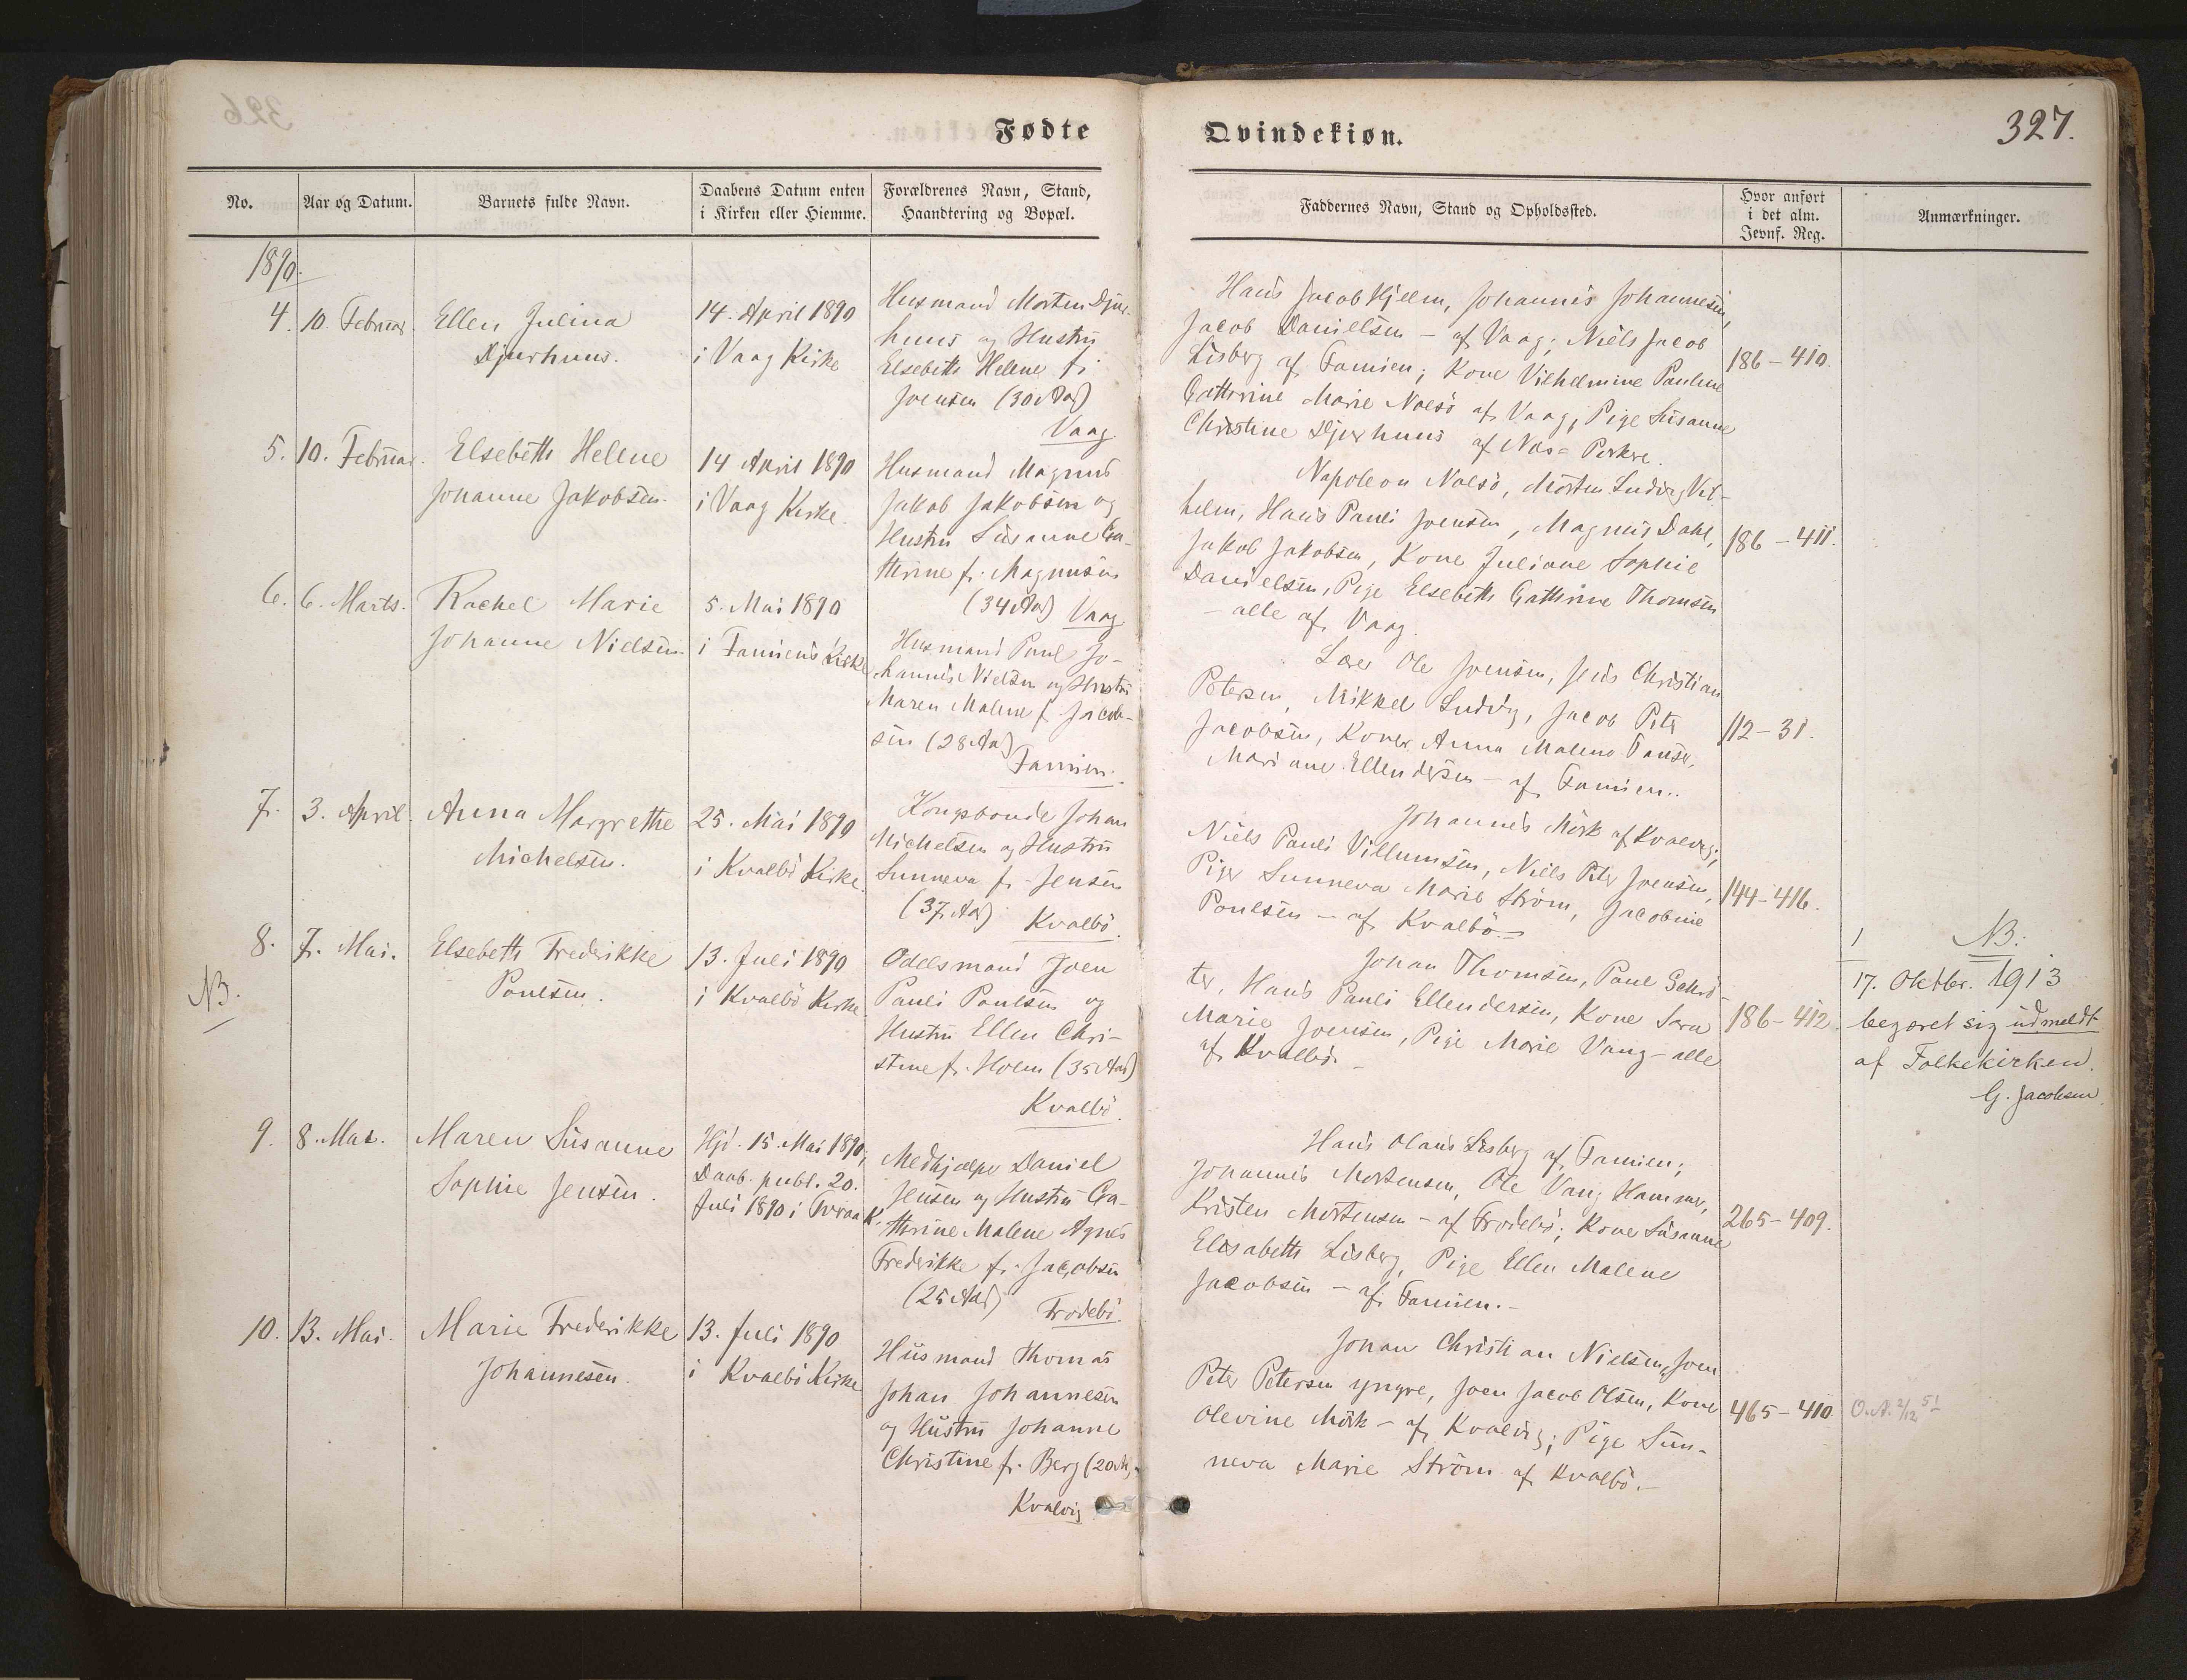 Fødte
Qvindekiøn.
327.
No.
Aar og Datum.
Barnets fulde Navn.
Daabens Datum enten
i Kirken eller Hiemme.
Forældrenes Navn, Stand,
Haandtering og Bopæl.
Faddernes Navn, Stand og Opholdssted.
Hvor anført
i det alm.
Jevnf. Reg.
Anmærkninger.
1890.
4.
10. Februar
Ellen Julina
Djurhuus.
14. April 1890
i Vaag Kirke
Husmand Morten Djur-
huus og Hustru
Elsebeth Helene f.
Joensen (30 Aar)
Vaag
Hans Jacob Hjelm, Johannis Johannesen,
Jacob Danielsen - af Vaag; Niels Jacob
Lisberg af Famien; Kone Vilhelmine Pauline
Cathrine Marie Nolsö af Vaag, Pige Susanne
Christine Djurhuus af Nas=Porkere.
186-410.
5.
10. Februar.
Elsebeth Helene
Johanne Jakobsen.
14 April 1890
i Vaag Kirke.
Husmand Magnus
Jakob Jakobsen og
Hustru Susanne Ca-
thrine f. Magnusen
(34 Aar) Vaag
Napoleon Nolsö, Morten Ludvig Vil-
helm, Hans Pauli Joensen, Magnus Dahl,
Jakob Jakobsen, Kone Juliane Sophie
Danielsen, Pige Elsebeth Cathrine Thomsen
- alle af Vaag.
186-411.
6.
6. Marts.
Rachel Marie
Johanne Nielsen.
5. Mai 1890
i Famiens Kirke
Husmand Poul Jo-
hannis Nielsen og Hustru
Maren Malene f. Jacob-
sen (28 Aar)
Famien.
Lærer Ole Joensen, Jens Christian
Petersen, Mikkel Ludvig, Jacob Peter
Jacobsen, Koner Anna Malene Tause,
Mariane Ellendersen - af Famien.
112-31.
7.
3. April.
Anna Margrethe
Michelsen.
25. Mai 1890
i Kvalbö Kirke.
Kongsbonde Johan
Michelsen og Hustru
Sunneva f. Jensen
(37 Aar) Kvalbö.
Johannes Mörk af Kvalvig,
Niels Pauli Villumsen, Niels Peter Joensen,
Piger Sunneva Marie Ström, Jacobine
Poulsen - af Kvalbö.
144-416.
8.
NB.
7. Mai.
Elsebeth Frederikke
Poulsen.
13. Juli 1890
i Kvalbö Kirke.
Odelsmand Joen
Pauli Poulsen og
Hustru Ellen Chri-
stine f. Holm (35 Aar)
Kvalbö.
Johan Thomsen, Poul Schrö-
ter, Hans Pauli Ellendersen, Kone Sara
Marie Joensen, Pige Marie Vang - alle
af Kvalbö.
186-412.
NB:
17. Oktbr. 1913
begæret sig udmeldt
af Folkekirken.
G. Jacobsen.
9.
8. Mai.
Maren Susanne
Sophie Jensen.
Hjd. 15. Mai 1890;
Daab. publ. 20.
Juli 1890 i Tvraa K.
Medhjælper Daniel
Jensen og Hustru Ca-
thrine Malene Agnes
Frederikke f. Jacobsen
(25 Aar) Frodebö.
Hans Olaus Lisberg af Famien;
Johannes Mortensen, Ole Vang Hammer,
Kristen Mortensen - af Frodebö; Kone Susanne
Elisabeth Lisberg, Pige Ellen Malene
Jacobsen - af Famien.
265-409.
10.
13. Mai.
Marie Frederikke
Johannesen.
13. Juli 1890
i Kvalbö Kirke
Husmand Thomas
Johan Johannesen
og Hustru Johanne
Christine f. Berg (20 A)
Kvalvig
Johan Christian Nielsen, Joen
Peter Petersen yngre, Joen Jacob Olsen, Kone
Olevine Mörk - af Kvalvig; Pige Sun-
neva Marie Ström af Kvalbö.
465-410.
O.A. 2/12 51